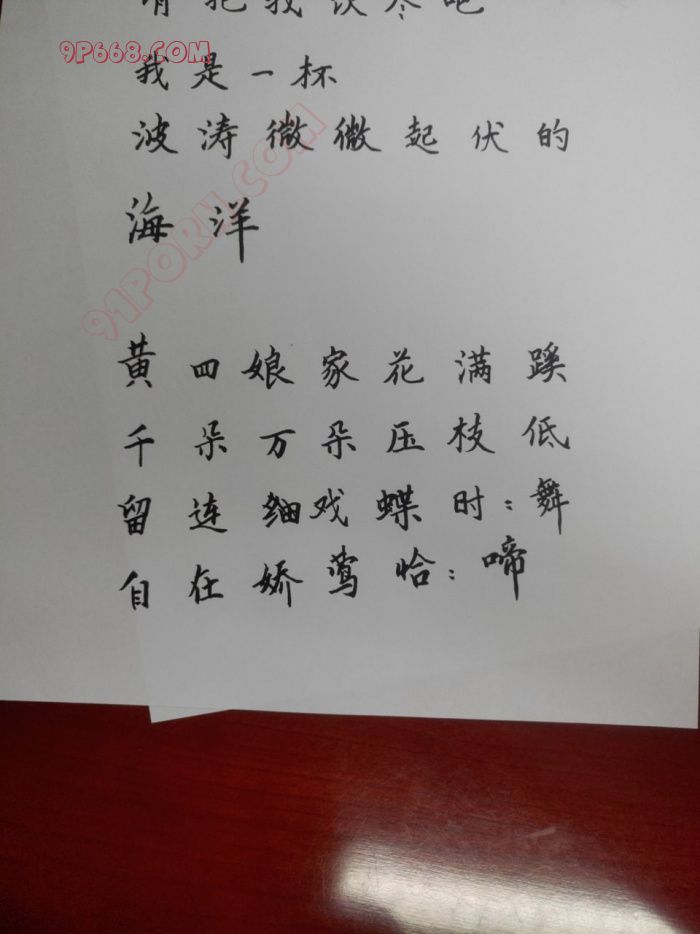 请把我饮尽吧
9P668.COM
我是一杯
波涛微微起伏的
91PORN.COM
海洋
黄四娘家花满蹊
千朵万朵压枝低
留连细戏蝶时:舞
自在娇莺恰:啼